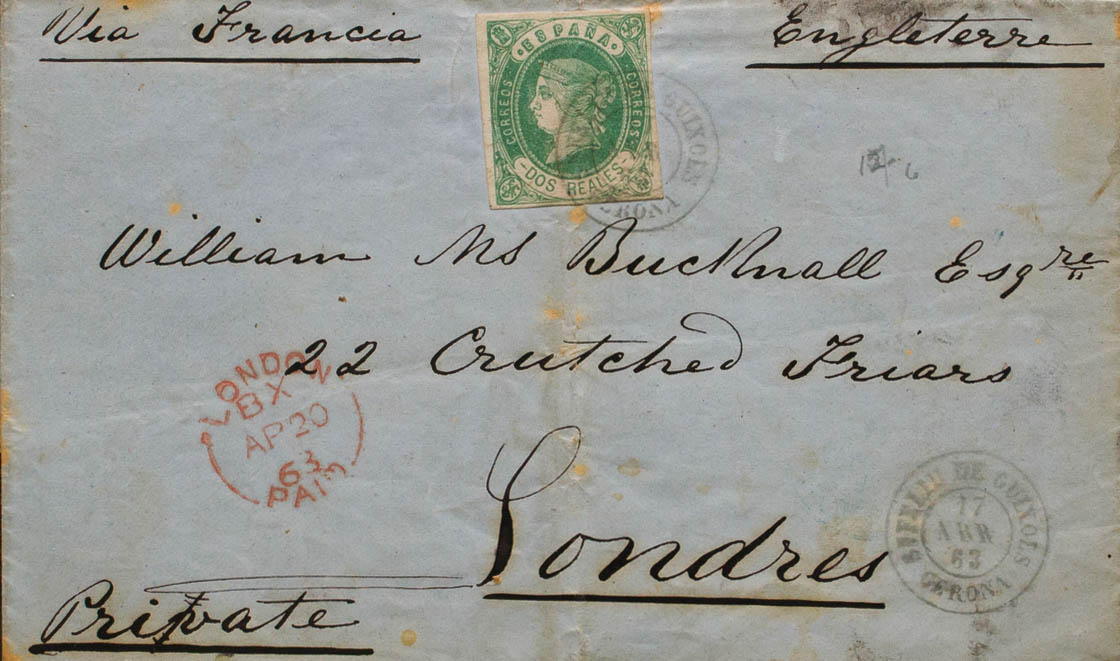 Via Francia
Engleterre
ESPAÑA
CORREOS
CORREOS
DOS REALES
GUIXOLS
GERONA
William Ms Bucknall Esqre
22 Crutched Friars
LONDON
BX
AP 20
63
PAID
Londres
DE GUIXOLS
17
ABR
63
GERONA
Private